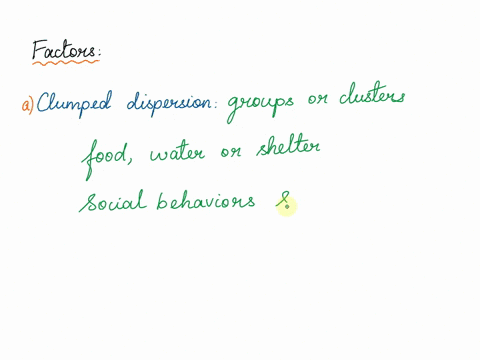 Factors:
a) Clumped dispersion: groups or clusters
food, water or shelter
Social behaviors &